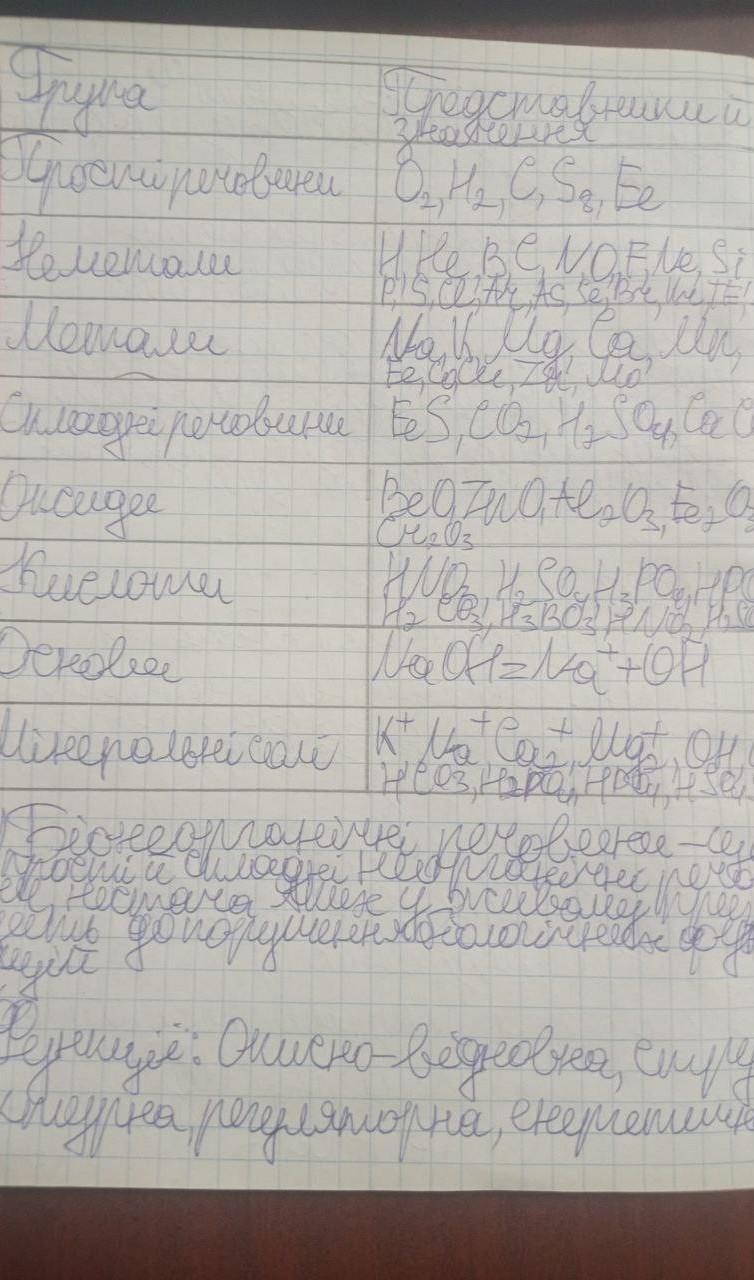 Група
Представники й
значення
Прості речовини
O₂, H₂, C, S₈, Fe
Неметали
H, He, B, C, N, O, F, Ne, Si
P, S, Cl, Ar, As, Se, Br, Kr, TE,
Метали
Na, K, Mg, Ca, Mn,
Fe, Co, Cu, Zn, Mo
Складні речовини
FeS, CO₂, H₂SO₄, CaC
Оксиди
BeO, ZnO, Al₂O₃, Fe₂O₃
Cr₂O₃
Кислоти
HNO₃, H₂SO₄, H₃PO₄, HPO
H₂CO₃, H₃BO₃, HNO₂, H₂SO
Основи
NaOH=Na⁺+OH
Мінеральні солі
K⁺ Na⁺ Ca₂⁺, Mg₂⁺, OH,
HCO3, H2PO4, HPO4, HSO4,
Біонеорганічні речовини – це
прості й складні неорганічні речов
ни, нестача яких у живому
дить до порушення біологічних фун
кцій
Функції: Окисно-відновна, стру
ктурна, регуляторна, енергетична